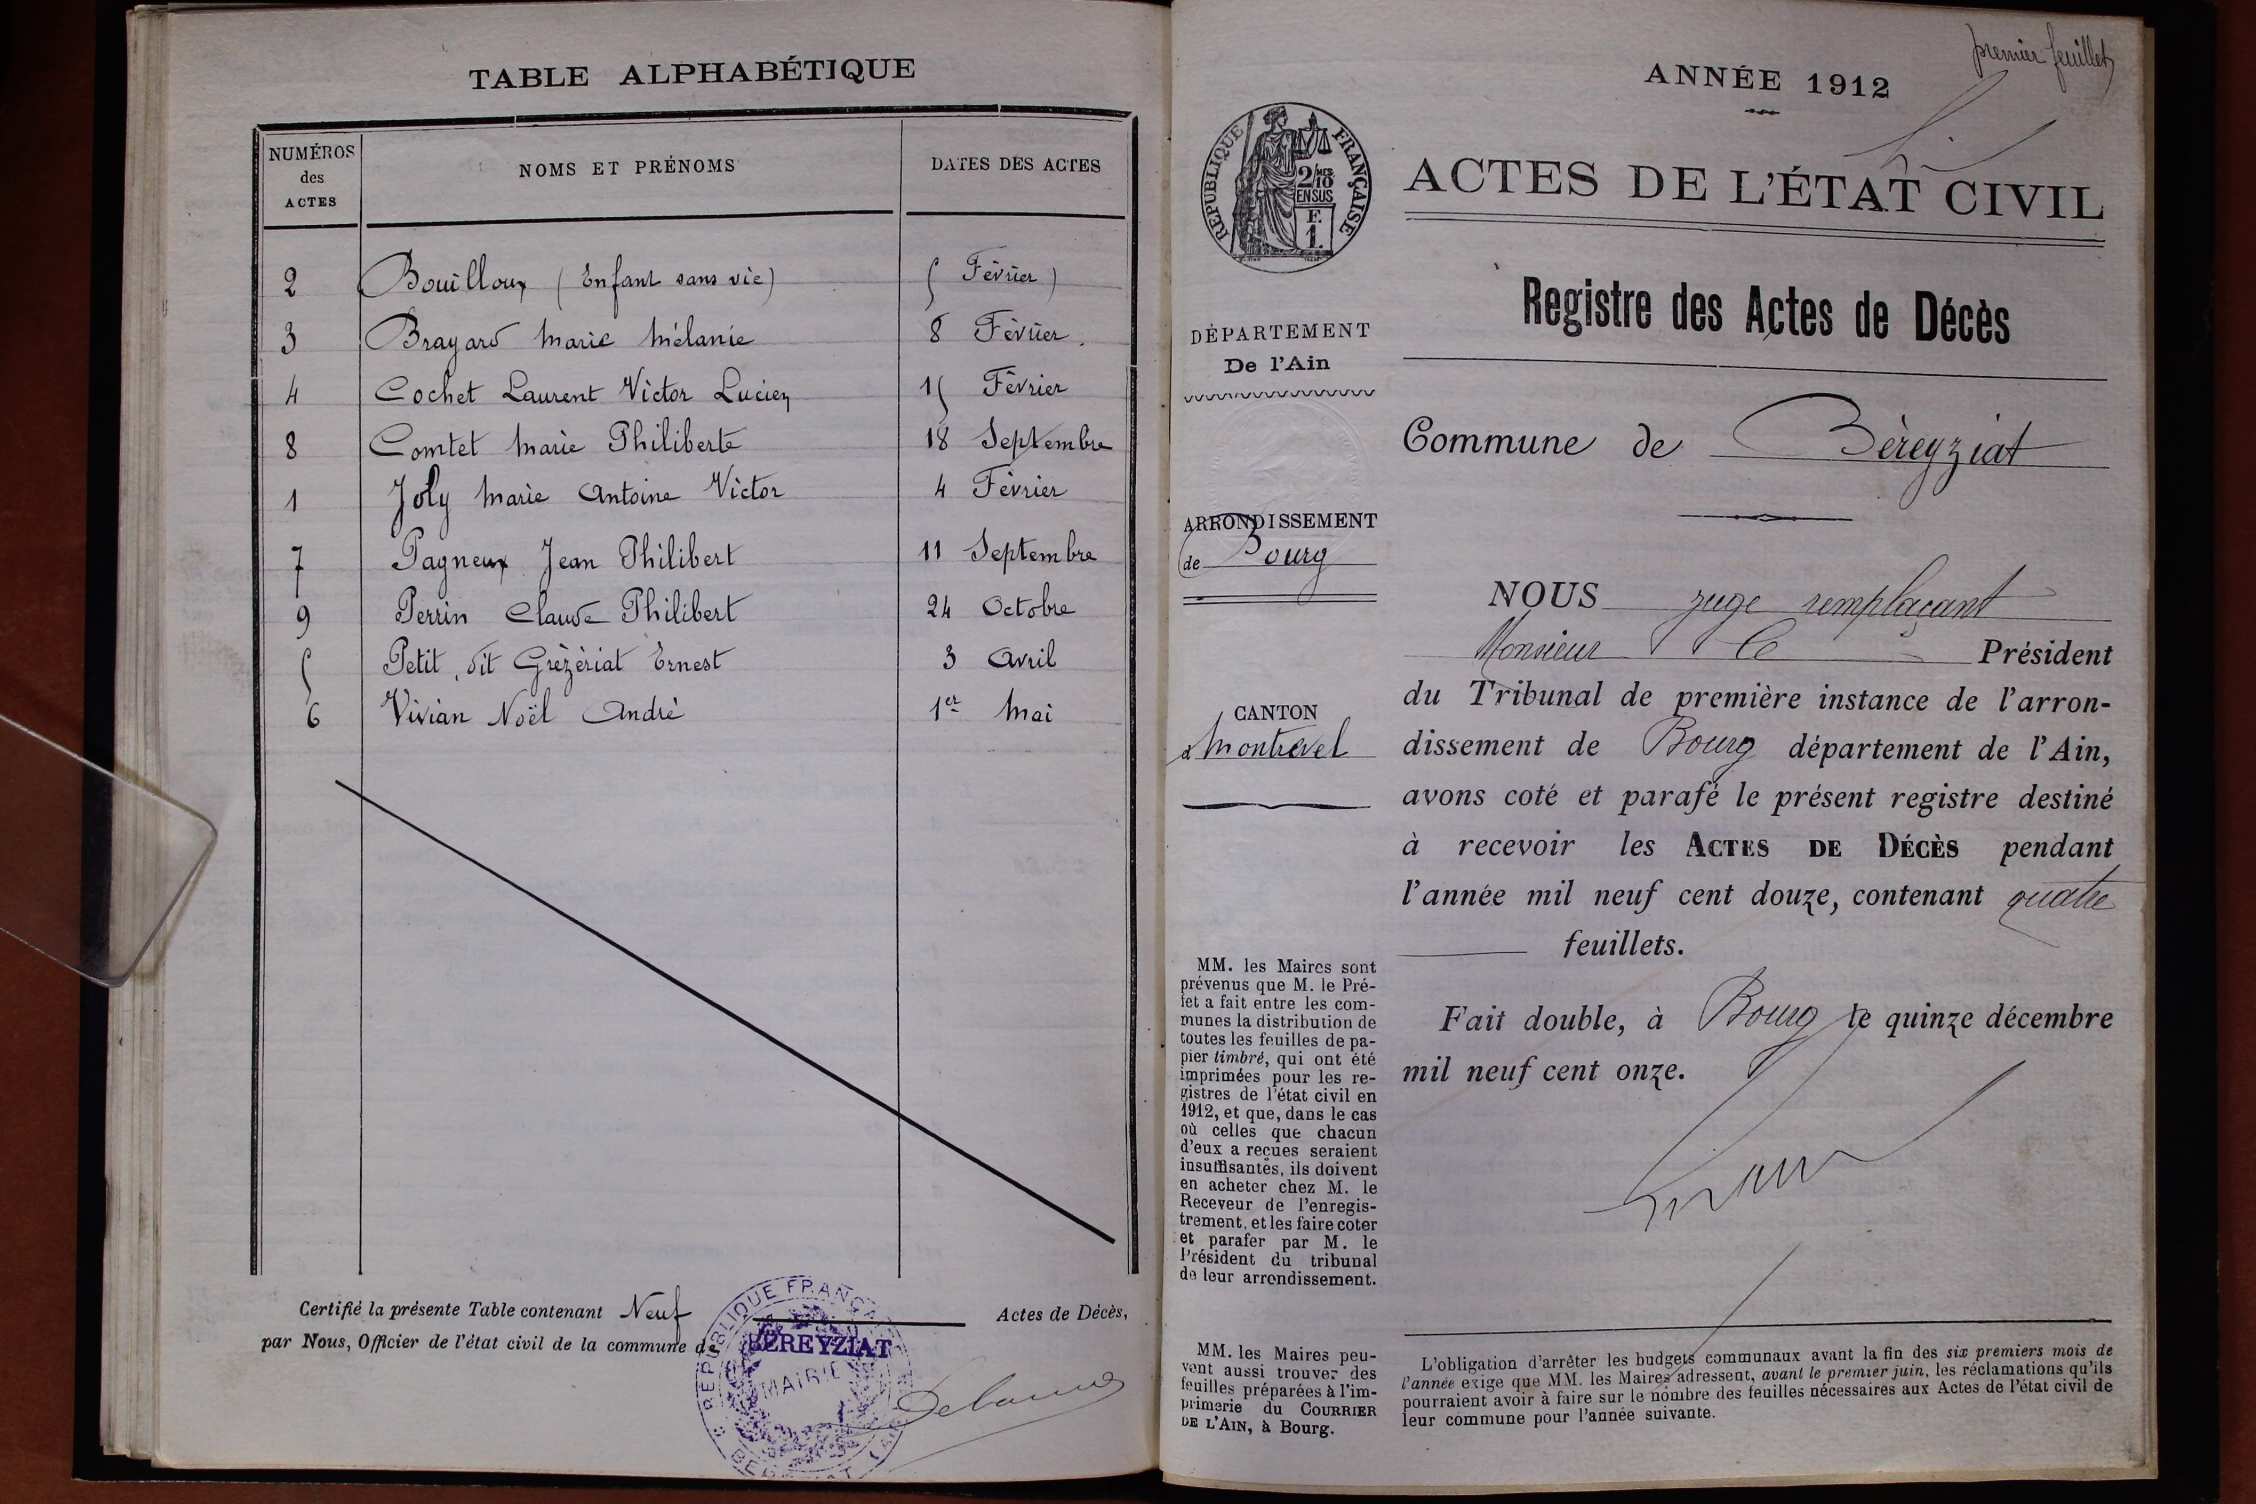 TABLE ALPHABÉTIQUE
NUMÉROS des ACTES
NOMS ET PRÉNOMS
DATES DES ACTES
2 Bouilloux (Enfant sans vie) 5 Février)
3 Brayard Marie Mélanie 8 Février.
4 Cochet Laurent Victor Lucien 15 Février
8 Comtet Marie Philiberte 18 Septembre
1 Joly Marie Antoine Victor 4 Février
7 Pagneux Jean Philibert 11 Septembre
9 Perrin Claude Philibert 24 Octobre
5 Petit, dit Grèzèriat Ernest 3 Avril
6 Vivian Noël Andrè 1er Mai
Certifié la présente Table contenant Neuf Actes de Décès,
par Nous, Officier de l'état civil de la commune de BEREYZIAT
RÉPUBLIQUE FRANÇAISE
MAIRIE
premier feuillet
ANNÉE 1912
RÉPUBLIQUE FRANÇAISE
2/10 MES
EN SUS
F.
1.
ACTES DE L'ÉTAT CIVIL
Registre des Actes de Décès
DÉPARTEMENT
De l'Ain
Commune de Bèreyziat
ARRONDISSEMENT
de Bourg
CANTON
d Montrevel
NOUS juge remplaçant
Monsieur le Président
du Tribunal de première instance de l'arron-
dissement de Bourg département de l'Ain,
avons coté et parafé le présent registre destiné
à recevoir les ACTES DE DÉCÈS pendant
l'année mil neuf cent douze, contenant quatre
feuillets.
Fait double, à Bourg le quinze décembre
mil neuf cent onze.
MM. les Maires sont
prévenus que M. le Pré-
fet a fait entre les com-
munes la distribution de
toutes les feuilles de pa-
pier timbré, qui ont été
imprimées pour les re-
gistres de l'état civil en
1912, et que, dans le cas
où celles que chacun
d'eux a reçues seraient
insuffisantes, ils doivent
en acheter chez M. le
Receveur de l'enregis-
trement, et les faire coter
et parafer par M. le
Président du tribunal
de leur arrondissement.
MM. les Maires peu-
vent aussi trouver des
feuilles préparées à l'im-
primerie du COURRIER
DE L'AIN, à Bourg.
L'obligation d'arrêter les budgets communaux avant la fin des six premiers mois de
l'année exige que MM. les Maires adressent, avant le premier juin, les réclamations qu'ils
pourraient avoir à faire sur le nombre des feuilles nécessaires aux Actes de l'état civil de
leur commune pour l'année suivante.